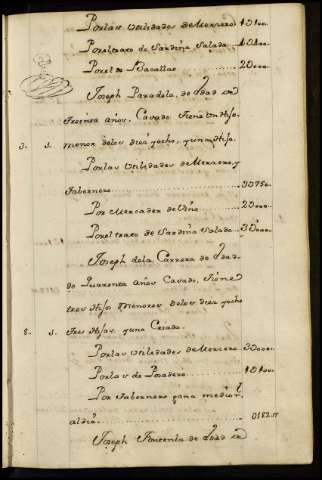 Porlas Utilidades de Mesonero 1 @ 100..
Porel trato de Sardina Salada 1 @ 100..
Porel de Bacallao 2 @ 000..
Joseph Paradela, de Edad de
treinta años, Casado tiene un Hijo
3. s. menor delos diez yocho, yuna Hija.
Porlas Utilidades de Mesonero, y
tabernero 3 @ 750..
Por Mercader de Vino 2 @ 000..
Porel trato de Sardina Salada
Joseph dela Carrera de Edad
de Quarenta años Casado, tiene
tres Hijos menores delos diez yocho
8. s. tres Hijas, yuna Criada.
Porlas Utilidades de Mesonero 3 @ 000..
Porlas de Panadero
Por tabernero gana medio rl.
aldia. @ 182.17
Joseph de Edad de